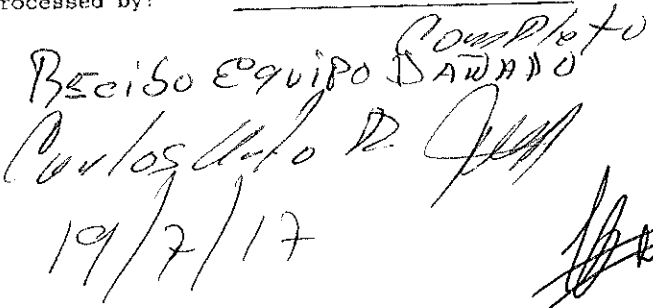 rocessed by:
Completo
Recibo Equipo DAÑADO
Carlos
19/7/17